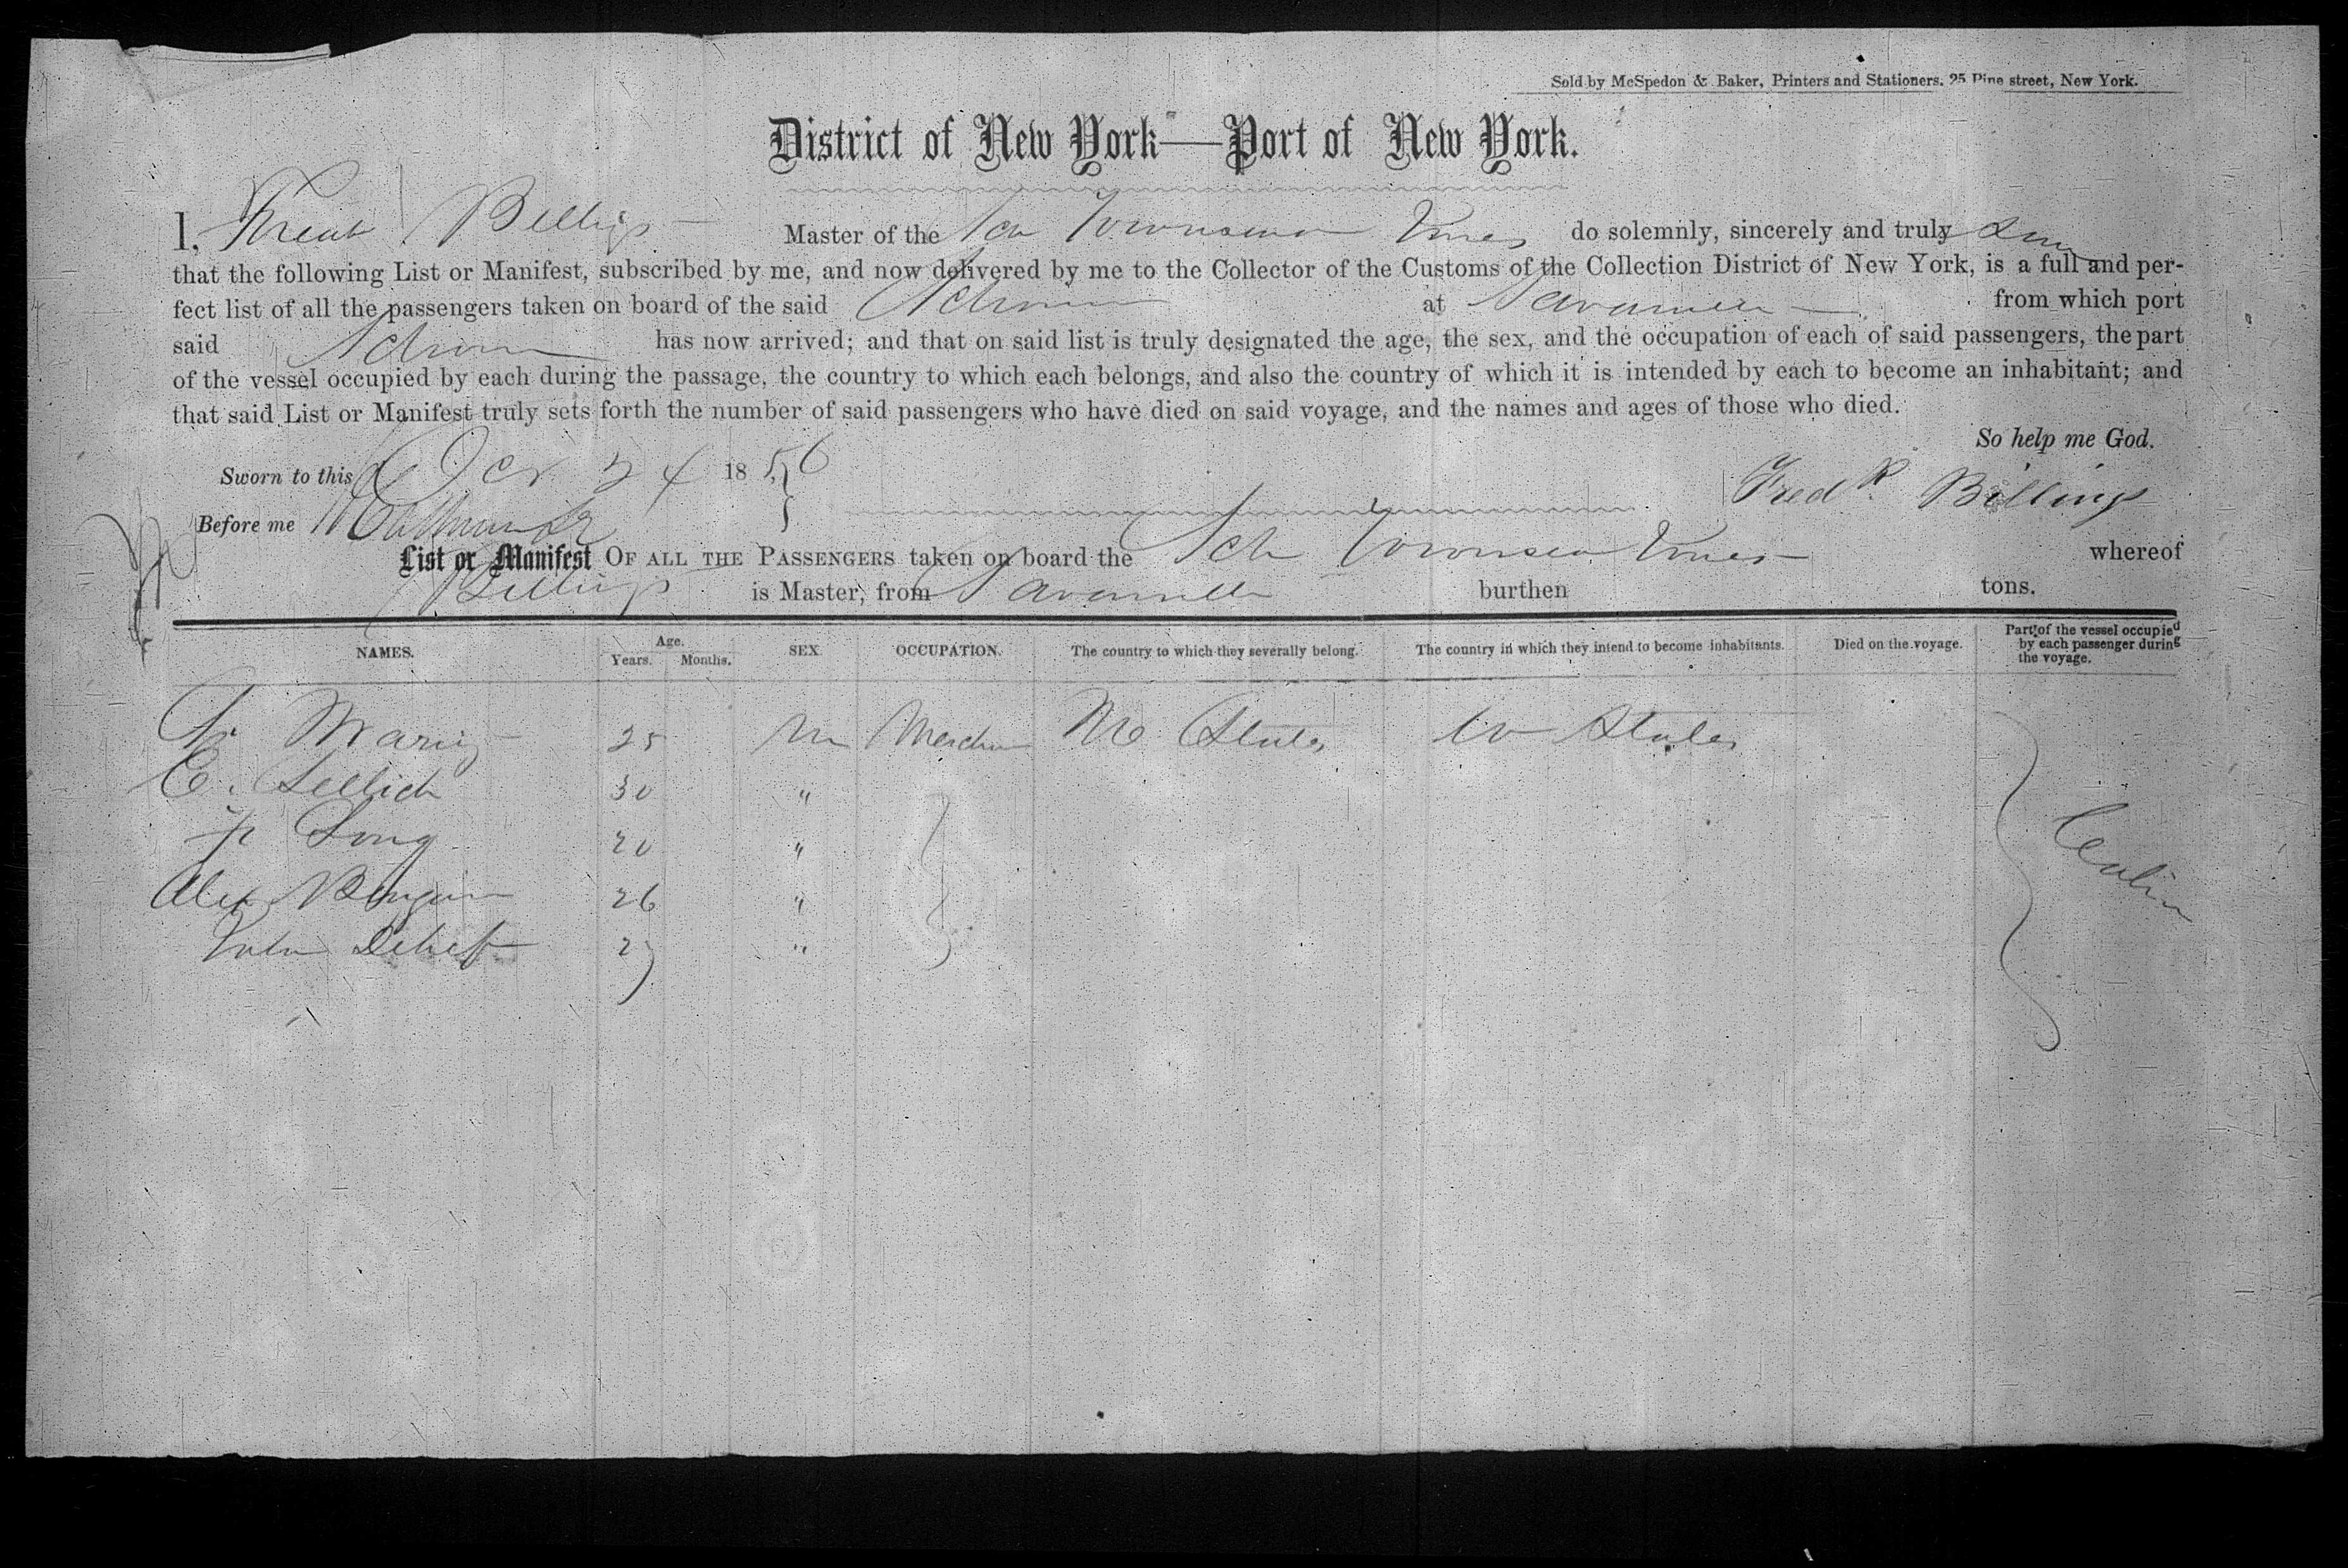 Sold by McSpedon & Baker, Printers and Stationers, 25 Pine street, New York.
District of New York—Port of New York.
I, Billings Master of the Sch Townsend Jones do solemnly, sincerely and truly
that the following List or Manifest, subscribed by me, and now delivered by me to the Collector of the Customs of the Collection District of New York, is a full and per-
fect list of all the passengers taken on board of the said at Savannah from which port
said has now arrived; and that on said list is truly designated the age, the sex, and the occupation of each of said passengers, the part
of the vessel occupied by each during the passage, the country to which each belongs, and also the country of which it is intended by each to become an inhabitant; and
that said List or Manifest truly sets forth the number of said passengers who have died on said voyage, and the names and ages of those who died.
So help me God.
Sworn to this Oct 24 1856
Fredk Billings
Before me
List or Manifest OF ALL THE PASSENGERS taken on board the Sch Townsend Jones whereof
Billings is Master, from Savannah burthen tons.
NAMES. Age. Years. Months. SEX. OCCUPATION. The country to which they severally belong. The country in which they intend to become inhabitants. Died on the voyage. Part of the vessel occupied by each passenger during the voyage.
25 m States States
E. 30 "
Long 20 "
Alex 26 "
John "
Cabin